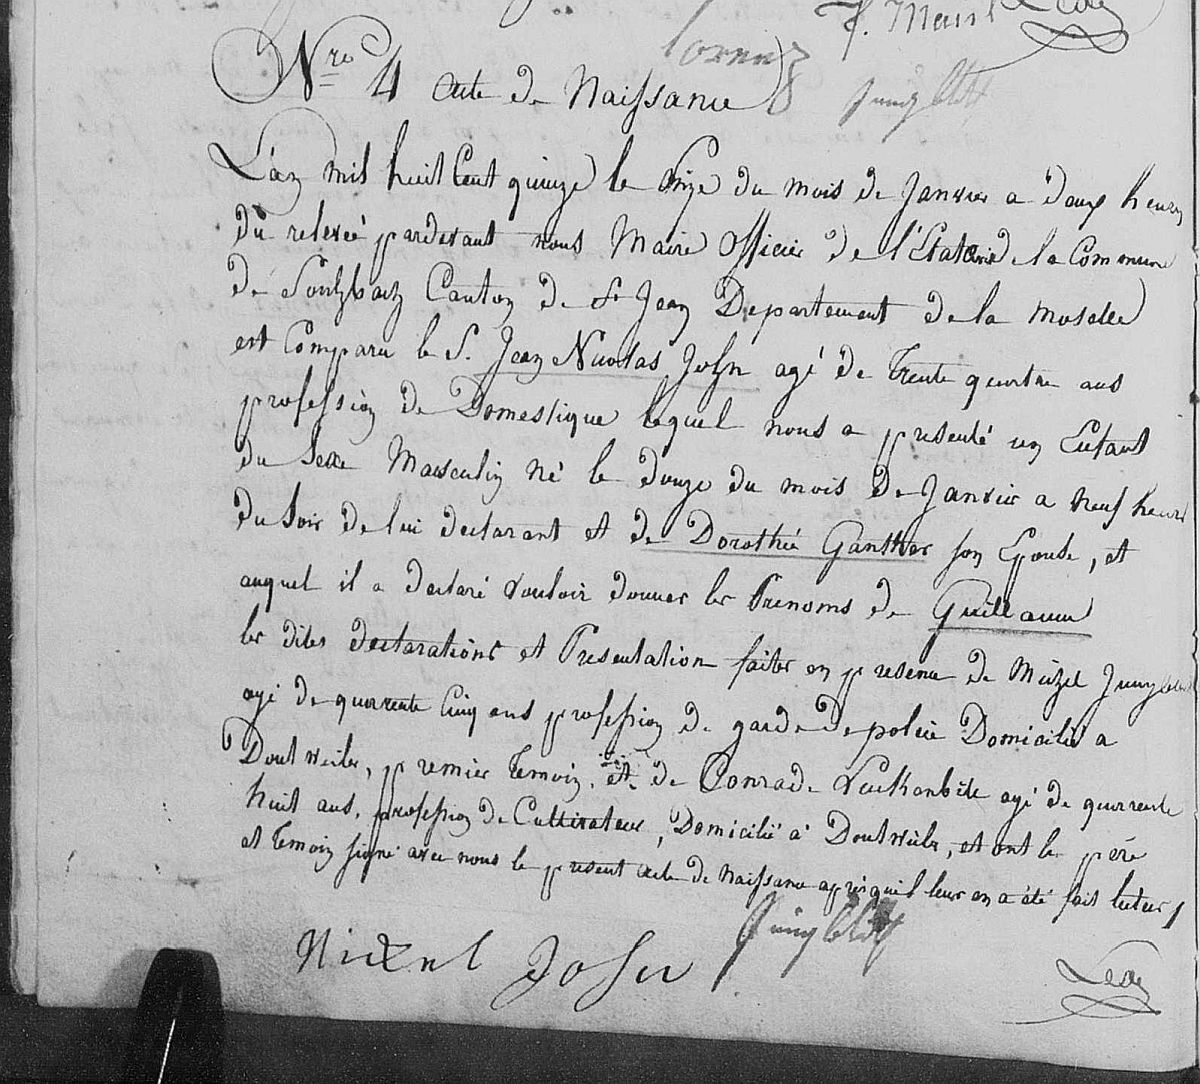 F. Meünl Ledy
lorenz
Nro 4 acte de Naissance Jungblutt
L'an mil huit Cent quinze le treize du mois de Janvier a deux heures
du relevée pardevant nous Maire Officier de l'Etat Civil de la Commune
de Soultzbach Canton de St Jean Departement de la moselle
est Comparu le S. Jean Nicolas John agé de trente quartre ans
profession de Domestique lequel nous a presenté un Enfant
du Sexe Masculin né le douze du mois de Janvier a neuf heures
du Soir de lui declarant et de Dorothé Ganther son Epouse, et
auquel il a declaré vouloir donner les Prenoms de Guillaume
les dites declarations et Presentation faites en presence de Michel Jungblutt
agé de quarrente Cinq ans profession de garde de police Domicilié a
Doutweiler, premier temoin, et de Conrade agé de quarrente
huit ans, profession de Cultivateur, Domicilié a Doutweiler, et ont le pére
et temoin signé avec nous le present acte de Naissance apres quil leur en a été fait lecture
Jungblutt
Nickel John
Ledy